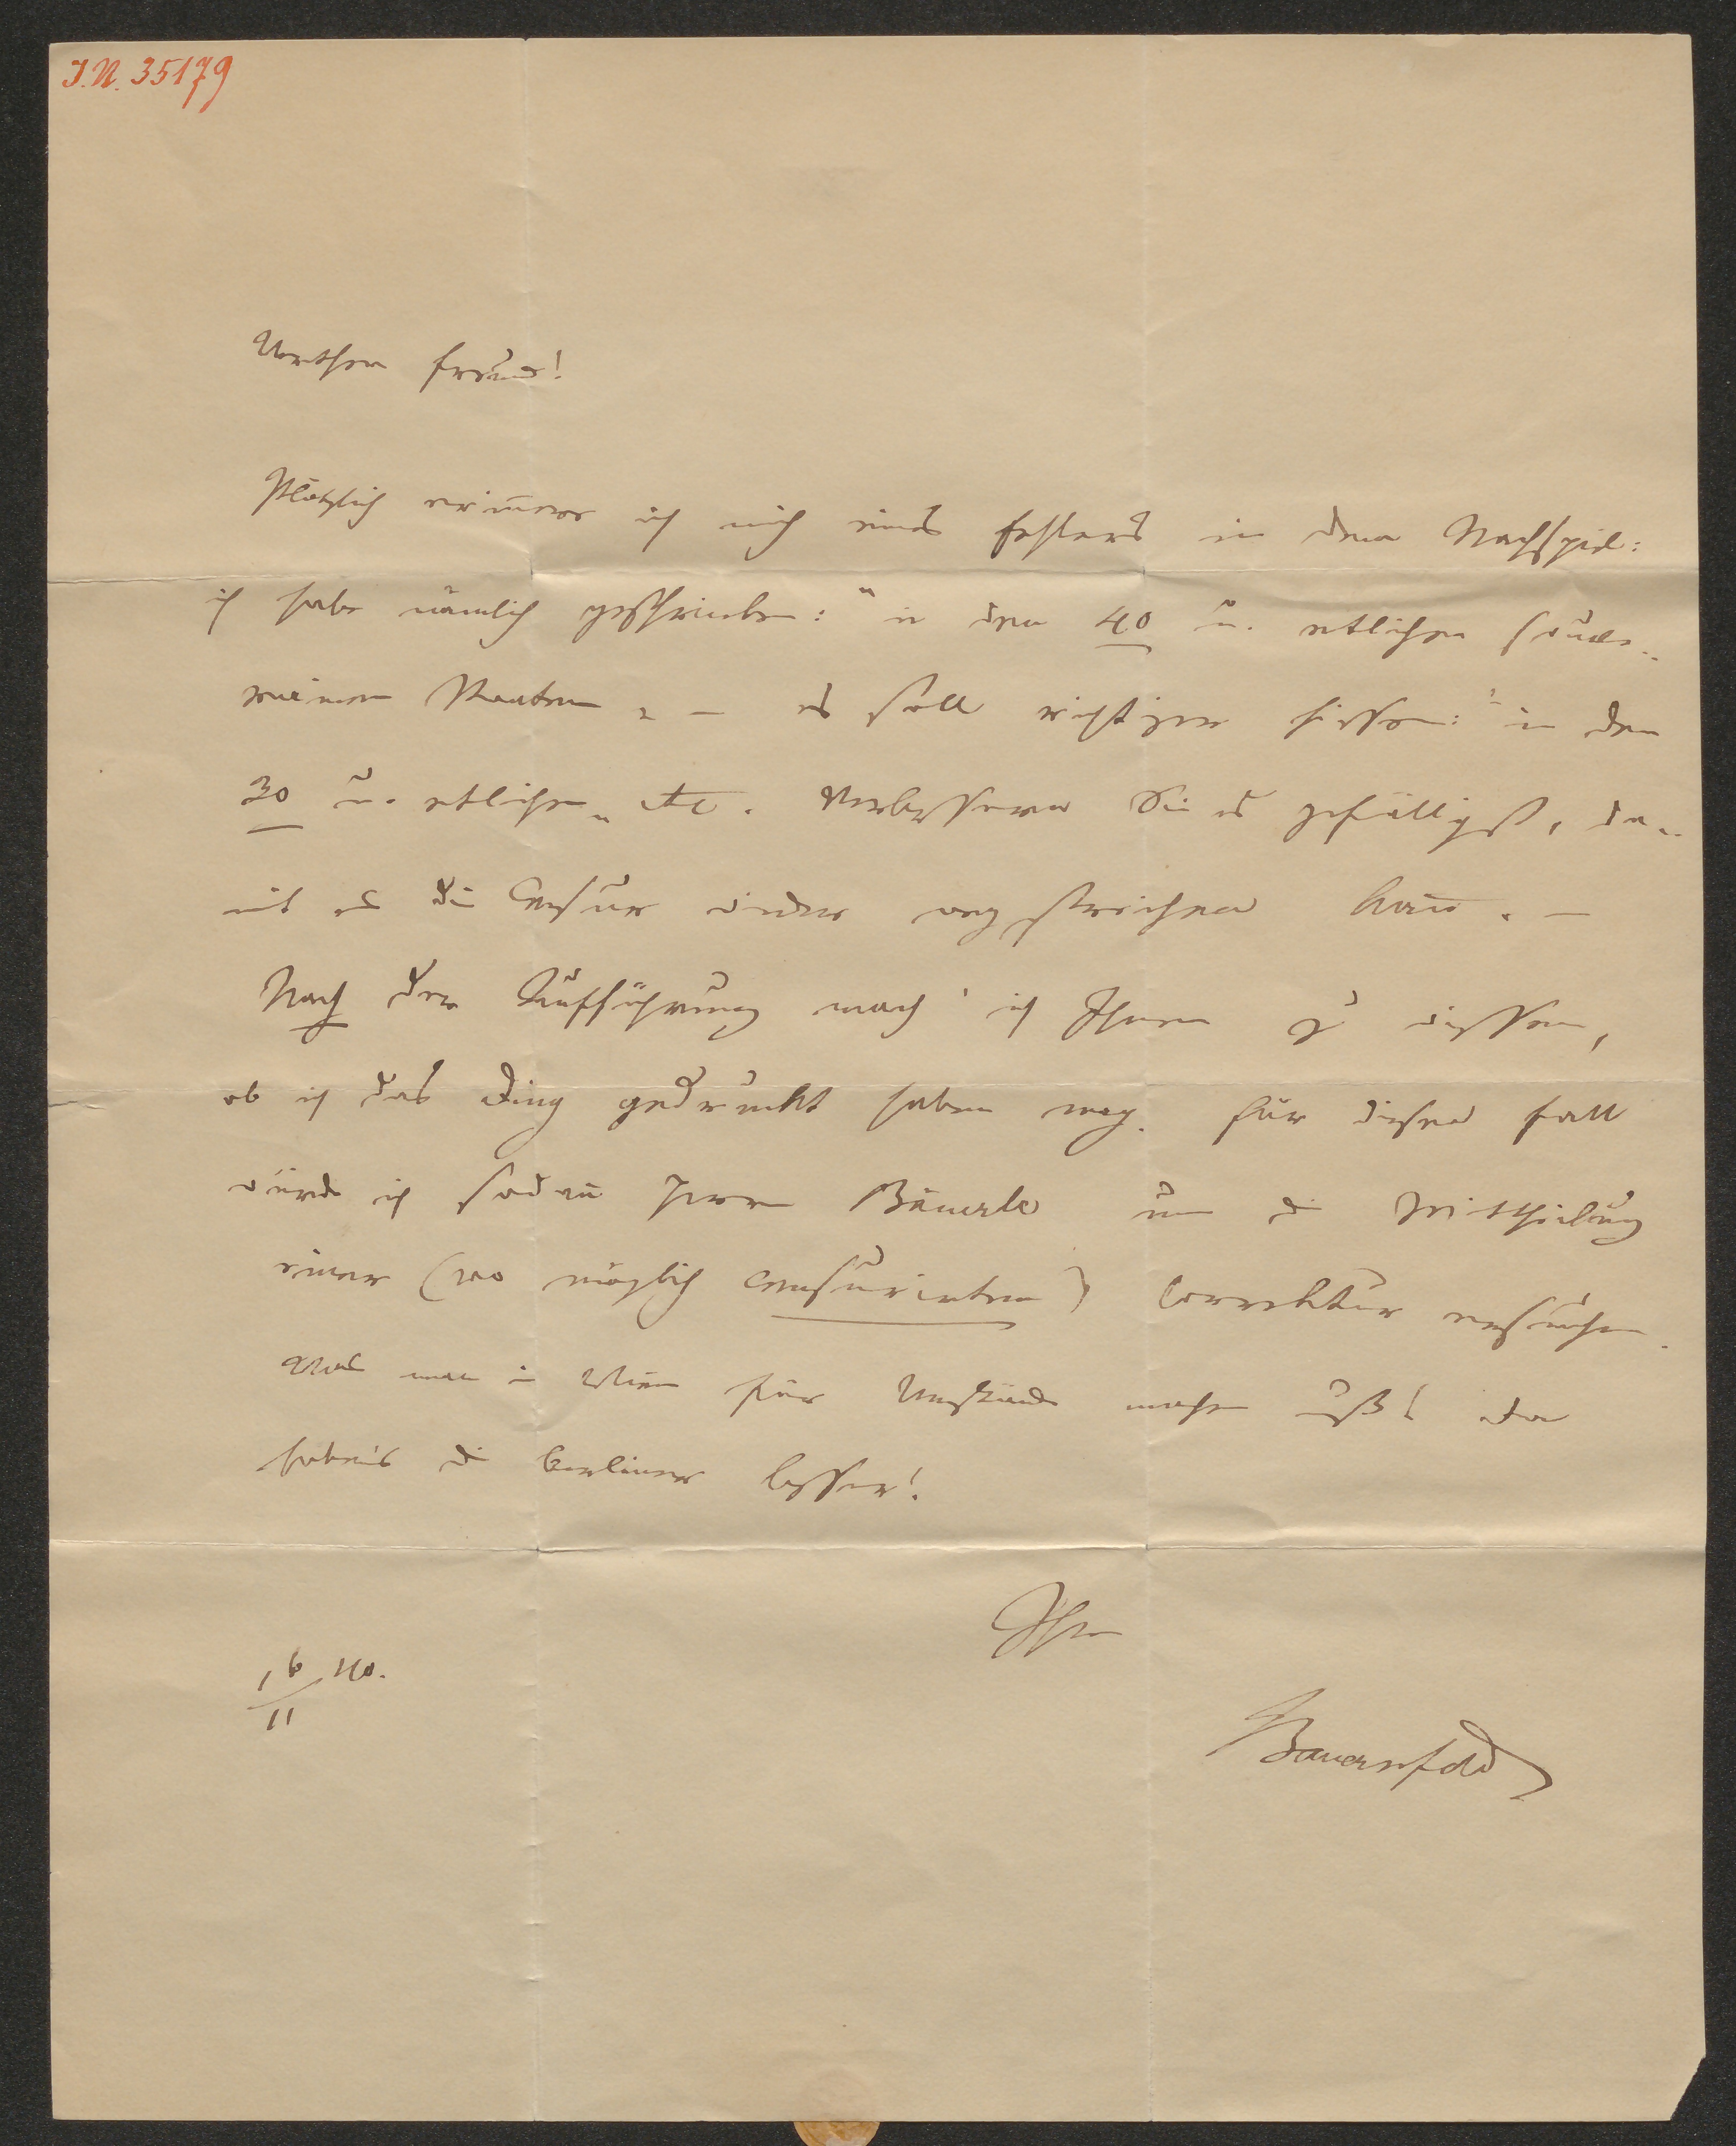 I.N. 35179
Werther Freund!
Plötzlich erinnere ich mich eines Fehlers in dem Nachspiel:
ich habe nämlich geschrieben: "in den 40 u. etlichen souve-
rainen Staaten" – es soll richtiger heissen: "in den
30 u. etlichen" etc. Verbessern Sie es gefälligst, da-
mit es die Censur wieder wegstreichen kann. –
Nach der Aufführung mach' ich Ihnen zu wissen,
ob ich das Ding gedruckt haben mag. Für diesen Fall
würde ich sodann Herrn Bäuerle um die Mittheilung
einer (wo möglich censurirten) Correktur ersuchen.
Was man in Wien für Umstände machen muß! Da
haben's die Berliner besser!
Ihr
16/11 40.
Bauernfeld